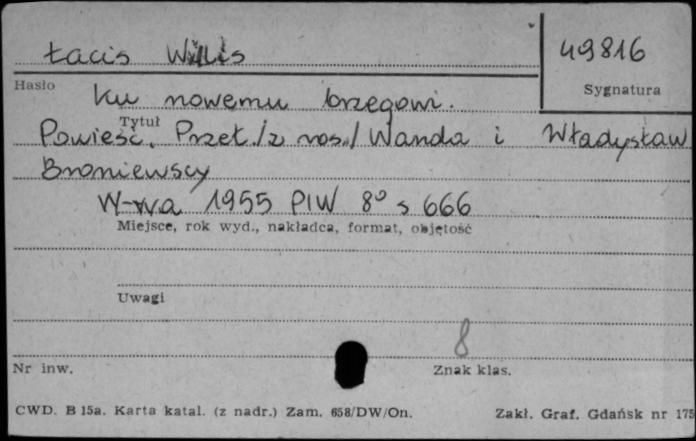 Łacis Willis
49816
Hasło
Sygnatura
Ku nowemu brzegowi.
Tytuł
Powieść. Przeł. /z ros./ Wanda i Władysław
Broniewscy
W-wa 1955 PIW 8° s 666
Miejsce, rok wyd., nakładca, format, objętość
Uwagi
8
Nr inw.
Znak klas.
CWD. B 15a. Karta katal. (z nadr.) Zam. 658/DW/On.
Zakł. Graf. Gdańsk nr 175